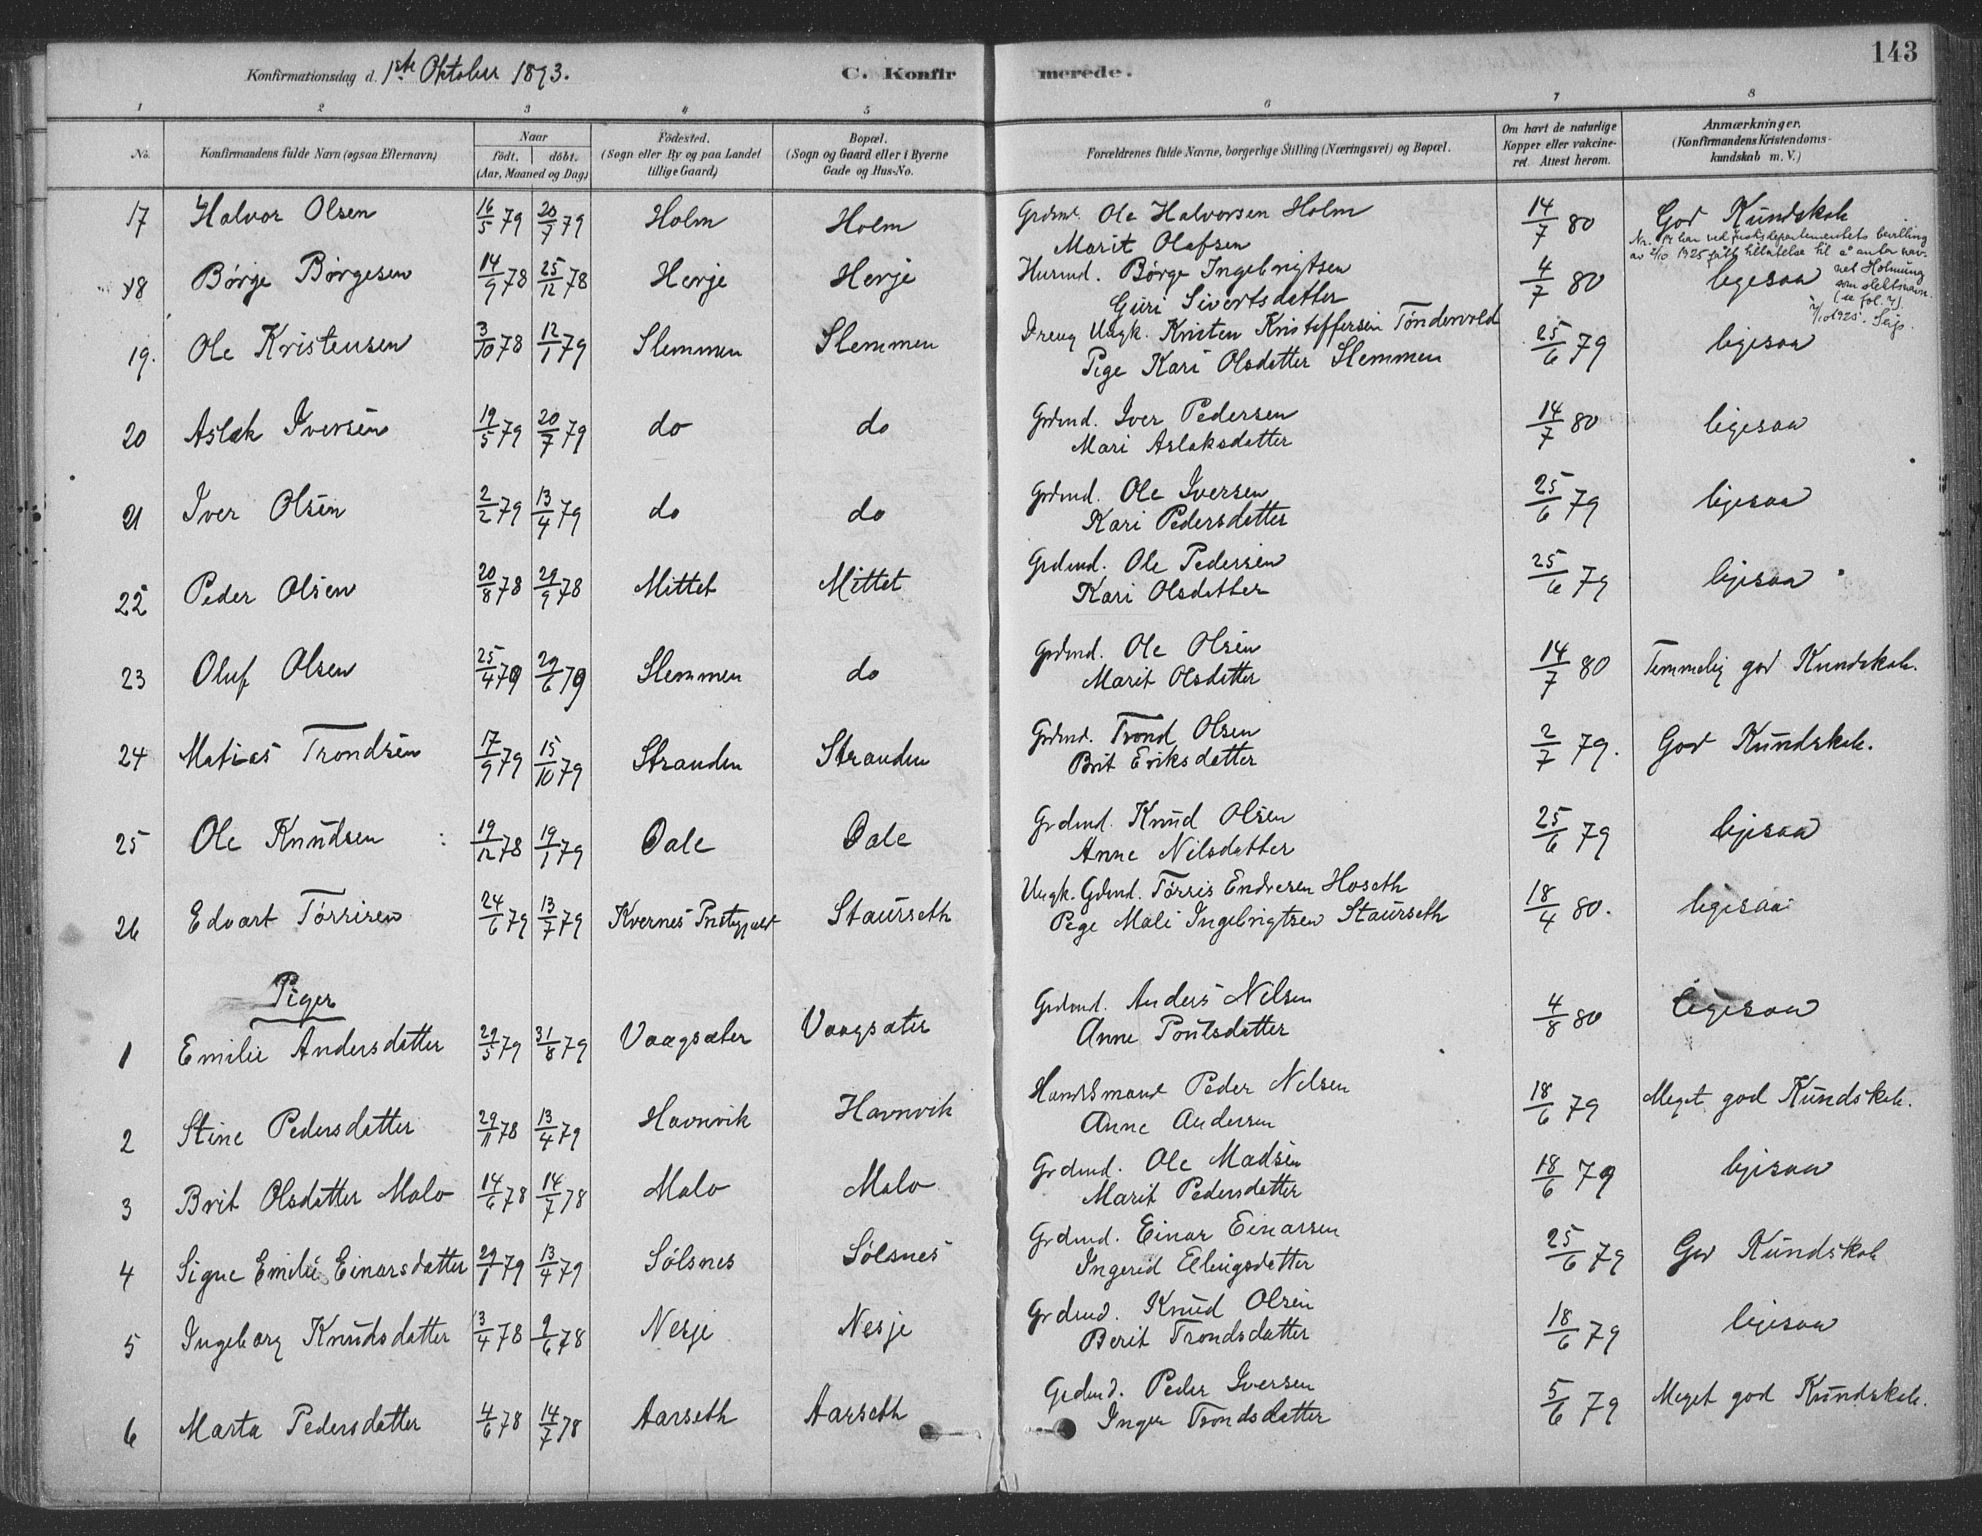 143
Konfirmationsdag d. 1ste Oktober 1893.
C. Konfirmerede.
1 2 3 4 5 6 7 8
No. Konfirmandens fulde Navn (ogsaa Efternavn) Naar födt. döbt. (Aar, Maaned og Dag) Födested. (Sogn eller By og paa Landet tillige Gaard) Bopæl. (Sogn og Gaard eller i Byerne Gade og Hus-No. Forældrenes fulde Navne, borgerlige Stilling (Næringsvei) og Bopæl. Om havt de naturlige Kopper eller vakcineret. Attest herom. Anmærkninger. (Konfirmandens Kristendomskundskab m. V.)
17 Halvor Olsen 16/5 79 20/7 79 Holm Holm Grdmd. Ole Halvorsen Holm 14/7 80 God Kundskab
Marit Olafsen
Nr. 17 har ved justisdepartementets bevilling
av 2/10 1925 fått tillatelse til å anta nav-
net Holmung
som slektsnavn.
(se fol. 7).
18 Børge Børgesen 14/9 78 25/12 78 Herje Herje Husmd. Børge Ingebrigtsen 4/7 80 ligesaa
Guri Sivertsdatter
19. Ole Kristensen 3/10 78 12/1 79 Slemmen Slemmen Dreng Ungk. Kristen Kristoffersen Tøndervold 25/6 79 ligesaa
Pige Kari Olsdatter Slemmen
20 Aslak Iversen 19/5 79 20/7 79 do do Grdmd. Iver Pedersen 14/7 80 ligesaa
Mari Aslaksdatter
21 Iver Olsen 2/2 79 13/4 79 do do Grdmd. Ole Iversen 25/6 79 ligesaa
Kari Pedersdatter
22 Peder Olsen 20/8 78 29/9 78 Mittet Mittet Grdmd. Ole Pedersen 25/6 79 ligesaa
Kari Olsdatter
23 Oluf Olsen 25/4 79 29/6 79 Slemmen do Grdmd. Ole Olsen 14/7 80 Temmelig god Kundskab.
Marit Olsdatter
24 Matias Trondsen 17/9 79 15/10 79 Stranden Stranden Grdmd. Trond Olsen 2/7 79. God Kundskab.
Brit Eriksdatter
25 Ole Knudsen 19/12 78 19/1 79 Dale Dale Grdmd. Knud Olsen 25/6 79 ligesaa
Anne Nilsdatter
26 Edvart Tørrisen 24/6 79 13/7 79 Kvernes Prstegjæld Staurseth Ungk. Gdmd. Tørris Endresen Hoseth 18/4 80. ligesaa
Pige Mali Ingebrigtsen Staurseth
Piger
1 Emilie Andersdatter 29/5 79 31/8 79 Vaagsæter Vaagsæter Grdmd. Anders Nilsen 4/8 80 ligesaa
Anne Poulsdatter
2 Stine Pedersdatter 29/11 78 13/4 79 Havnvik Havnvik Handlsmand Peder Nilsen 18/6 79 Meget god Kundskab.
Anne Andersen
3 Brit Olsdatter Malo 14/6 78 14/7 78 Malo Malo Grdmd. Ole Madsen 18/6 79 ligesaa
Marit Pedersdatter
4 Signe Emilie Einarsdatter 29/1 79 13/4 79 Sølsnes Sølsnes Grdmd. Einar Einarsen 25/6 79 God Kundskab
Ingerid Ellingsdatter
5 Ingeborg Knudsdatter 13/4 78 9/6 78 Nesje Nesje Grdmd. Knud Olsen 18/6 79 ligesaa
Berit Trondsdatter
6 Marta Pedersdatter 4/6 78 14/7 78 Aarseth Aarseth Grdmd. Peder Iversen 5/6 79 Meget god Kundskab.
Inger Trondsdatter